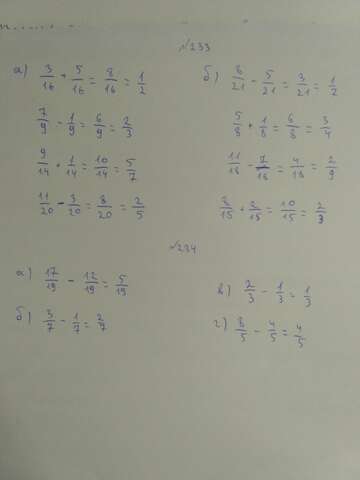 №233
а) 3/16 + 5/16 = 8/16 = 1/2
7/9 - 1/9 = 6/9 = 2/3
9/14 + 1/14 = 10/14 = 5/7
11/20 - 3/20 = 8/20 = 2/5
б) 8/21 - 5/21 = 3/21 = 1/2
5/8 + 1/8 = 6/8 = 3/4
11/18 - 7/18 = 4/18 = 2/9
2/15 + 8/15 = 10/15 = 2/3
№234
а) 17/19 - 12/19 = 5/19
б) 3/7 - 1/7 = 2/7
в) 2/3 - 1/3 = 1/3
г) 8/5 - 4/5 = 4/5